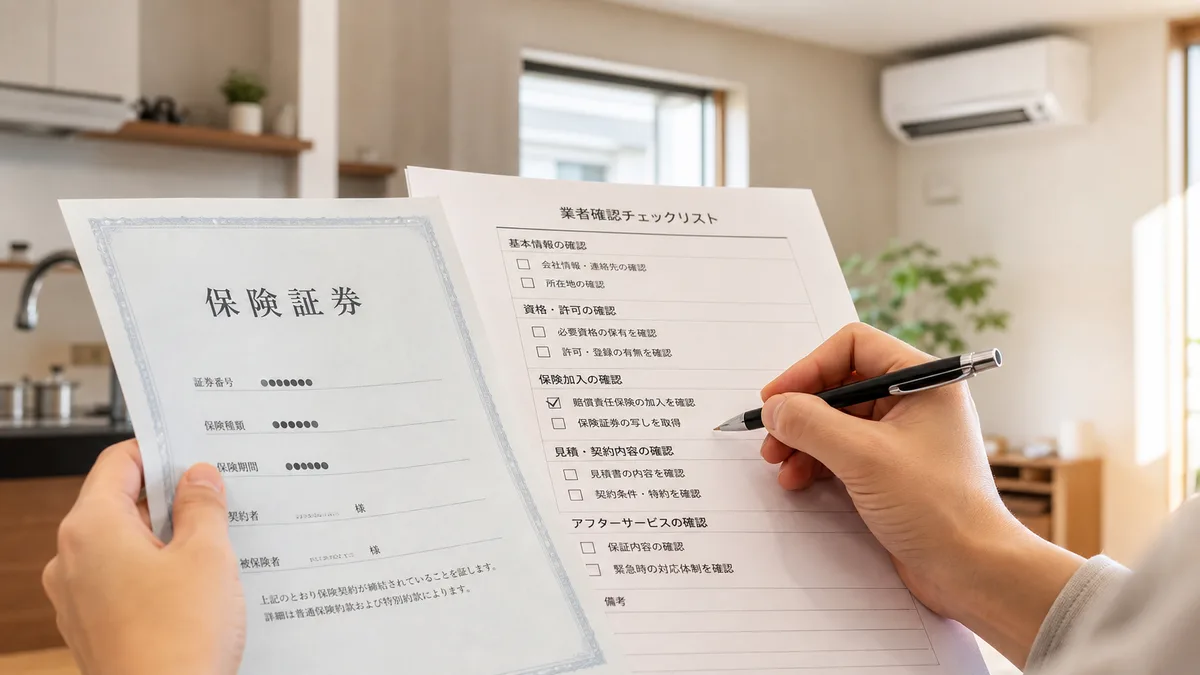 保険証券
証券番号 ●●●●●●●
保険種類 ●●●●●●
保険期間 ●●●●●●
契約者 様
被保険者 様
上記のとおり保険契約が締結されていることを証します。
詳細は普通保険約款および特別約款によります。
業者確認チェックリスト
基本情報の確認
会社情報・連絡先の確認
所在地の確認
資格・許可の確認
必要資格の保有を確認
許可・登録の有無を確認
保険加入の確認
賠償責任保険の加入を確認
保険証券の写しを取得
見積・契約内容の確認
見積書の内容を確認
契約条件・特約を確認
アフターサービスの確認
保証内容の確認
緊急時の対応体制を確認
備考